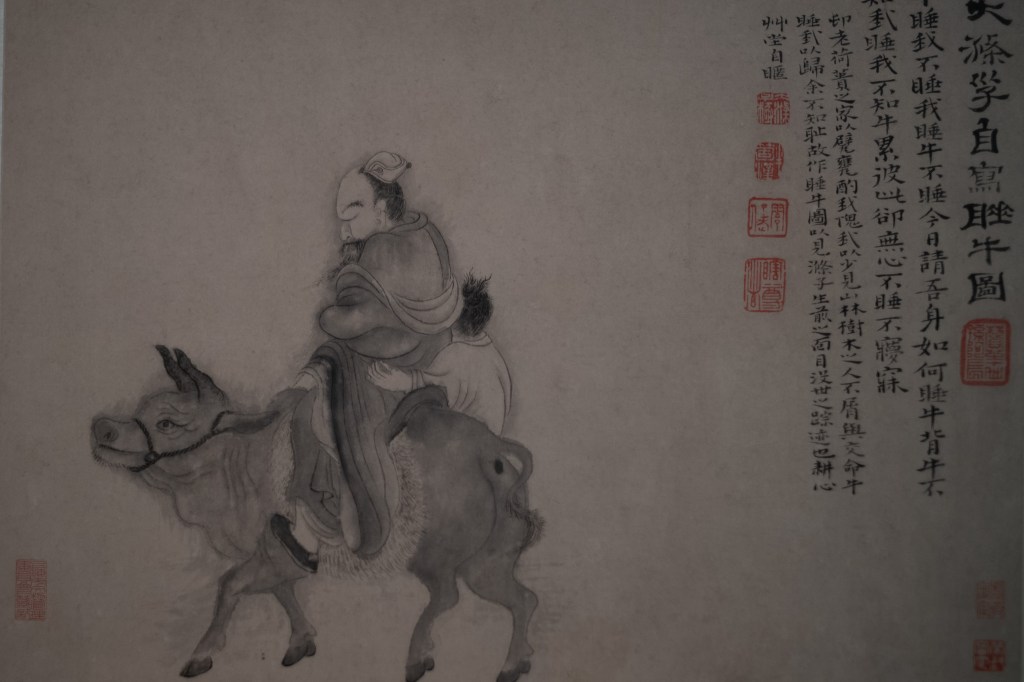 滌子自寫睡牛圖
牛睡我不睡我睡牛不睡今日請吾身如何睡牛背牛不
知我睡我不知牛累彼此卻無心不睡不㝱寐
印老荷蕢之家以甓甕酌我愧我以少見山林樹木之人不屑與交命牛
睡我以歸余不知耻故作睡牛圖以見滌子生前之面目沒世之踪迹也耕心
艸堂自嘔